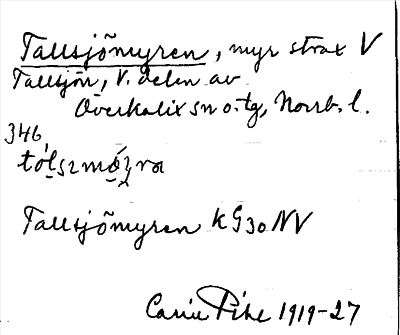 Tallsjömyren, myr strax V
Tallsjön, V. delen av
Överkalix sn o. tg, Norrb. l.
346,
Tallsjömyren KG30 NV
Carin Pihl 1919-27